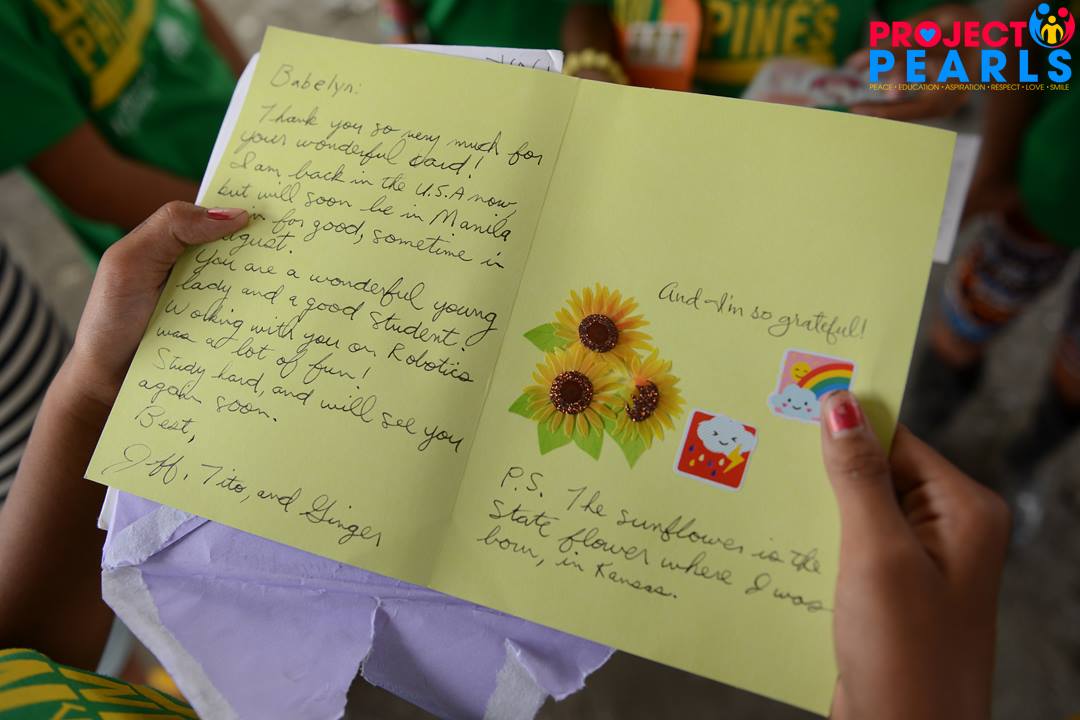 PROJECT
PEARLS
PEACE • EDUCATION • ASPIRATION • RESPECT • LOVE • SMILE
PINE'S
Babelyn:
Thank you so very much for
your wonderful card!
I am back in the U.S.A now,
but will soon be in Manila
in for good, sometime in
ugust.
You are a wonderful young
lady and a good student.
Working with you on Robotics
was a lot of fun!
Study hard, and will see you
again soon.
Best,
Jeff, Tito, and Ginger
And I'm so grateful!
P.S. The sunflower is the
State flower where I was
born, in Kansas.